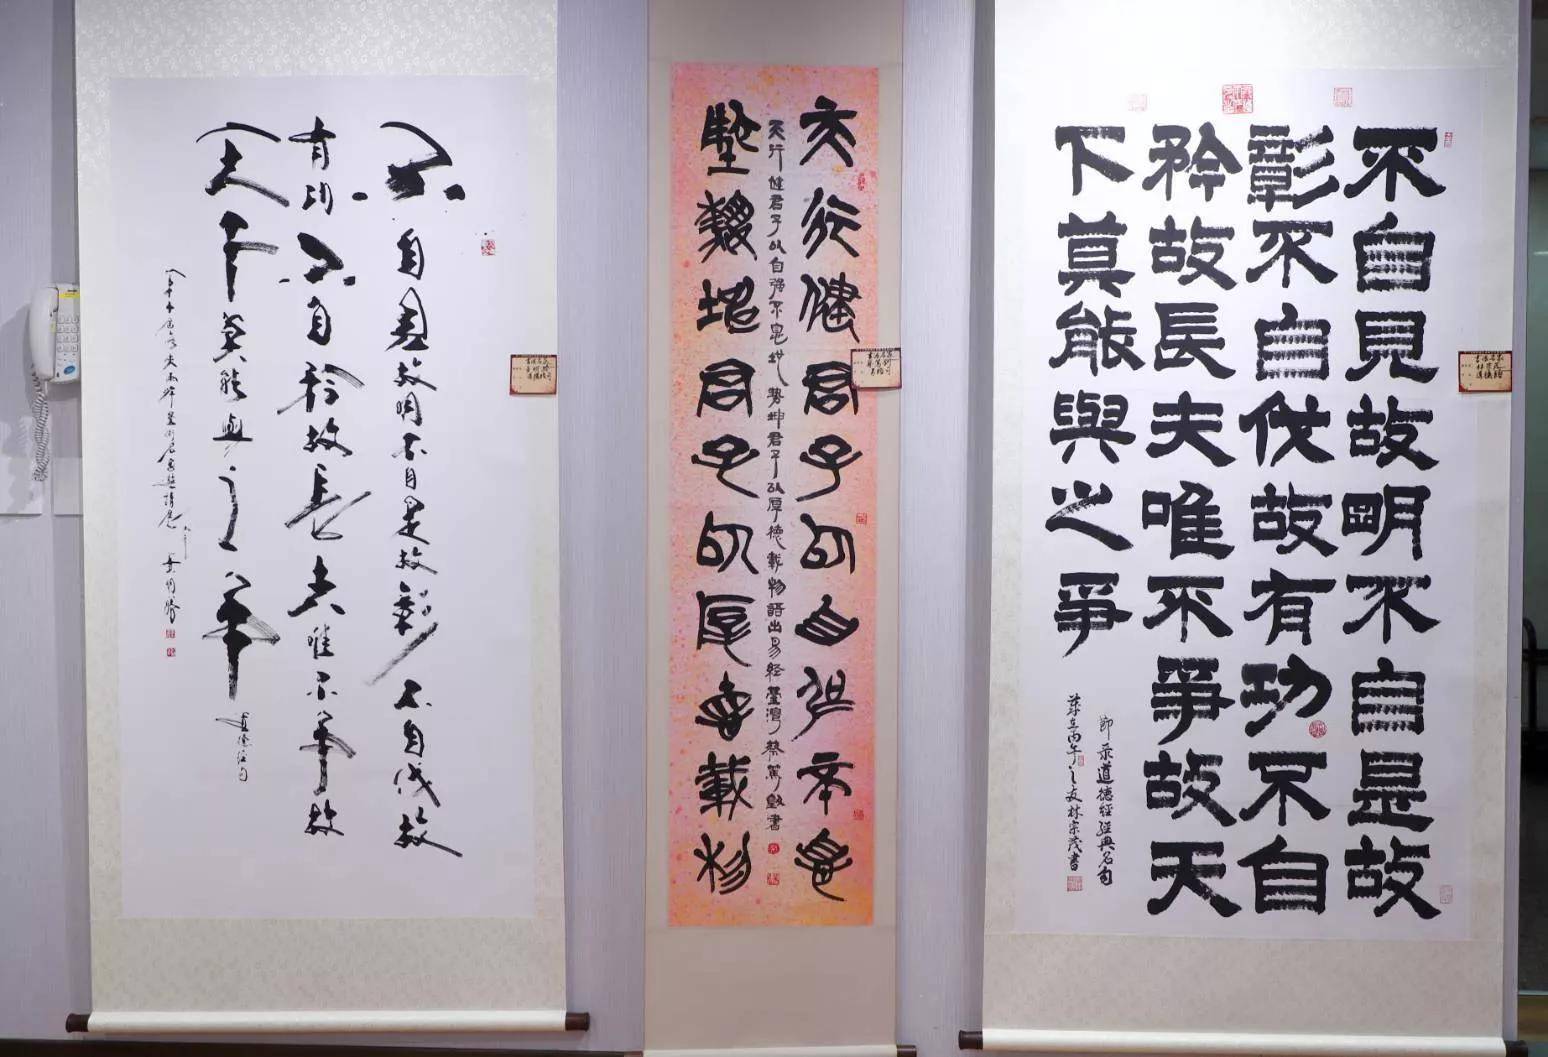 不自見故明不自是故
彰不自伐故有功不自
矜故長夫唯不爭故天
下莫能與之爭
節录道德經經典名句
歲在丙午之林宗茂書
天行健君子以自強不息
天行健君子以自强不息地势坤君子以厚德載物語出易经臺灣蔡篤書
地勢坤君子以厚德載物
不自見故明不自是故彰不自伐故
有功不自矜故長夫唯不爭故
天下莫能與之爭
道德經句